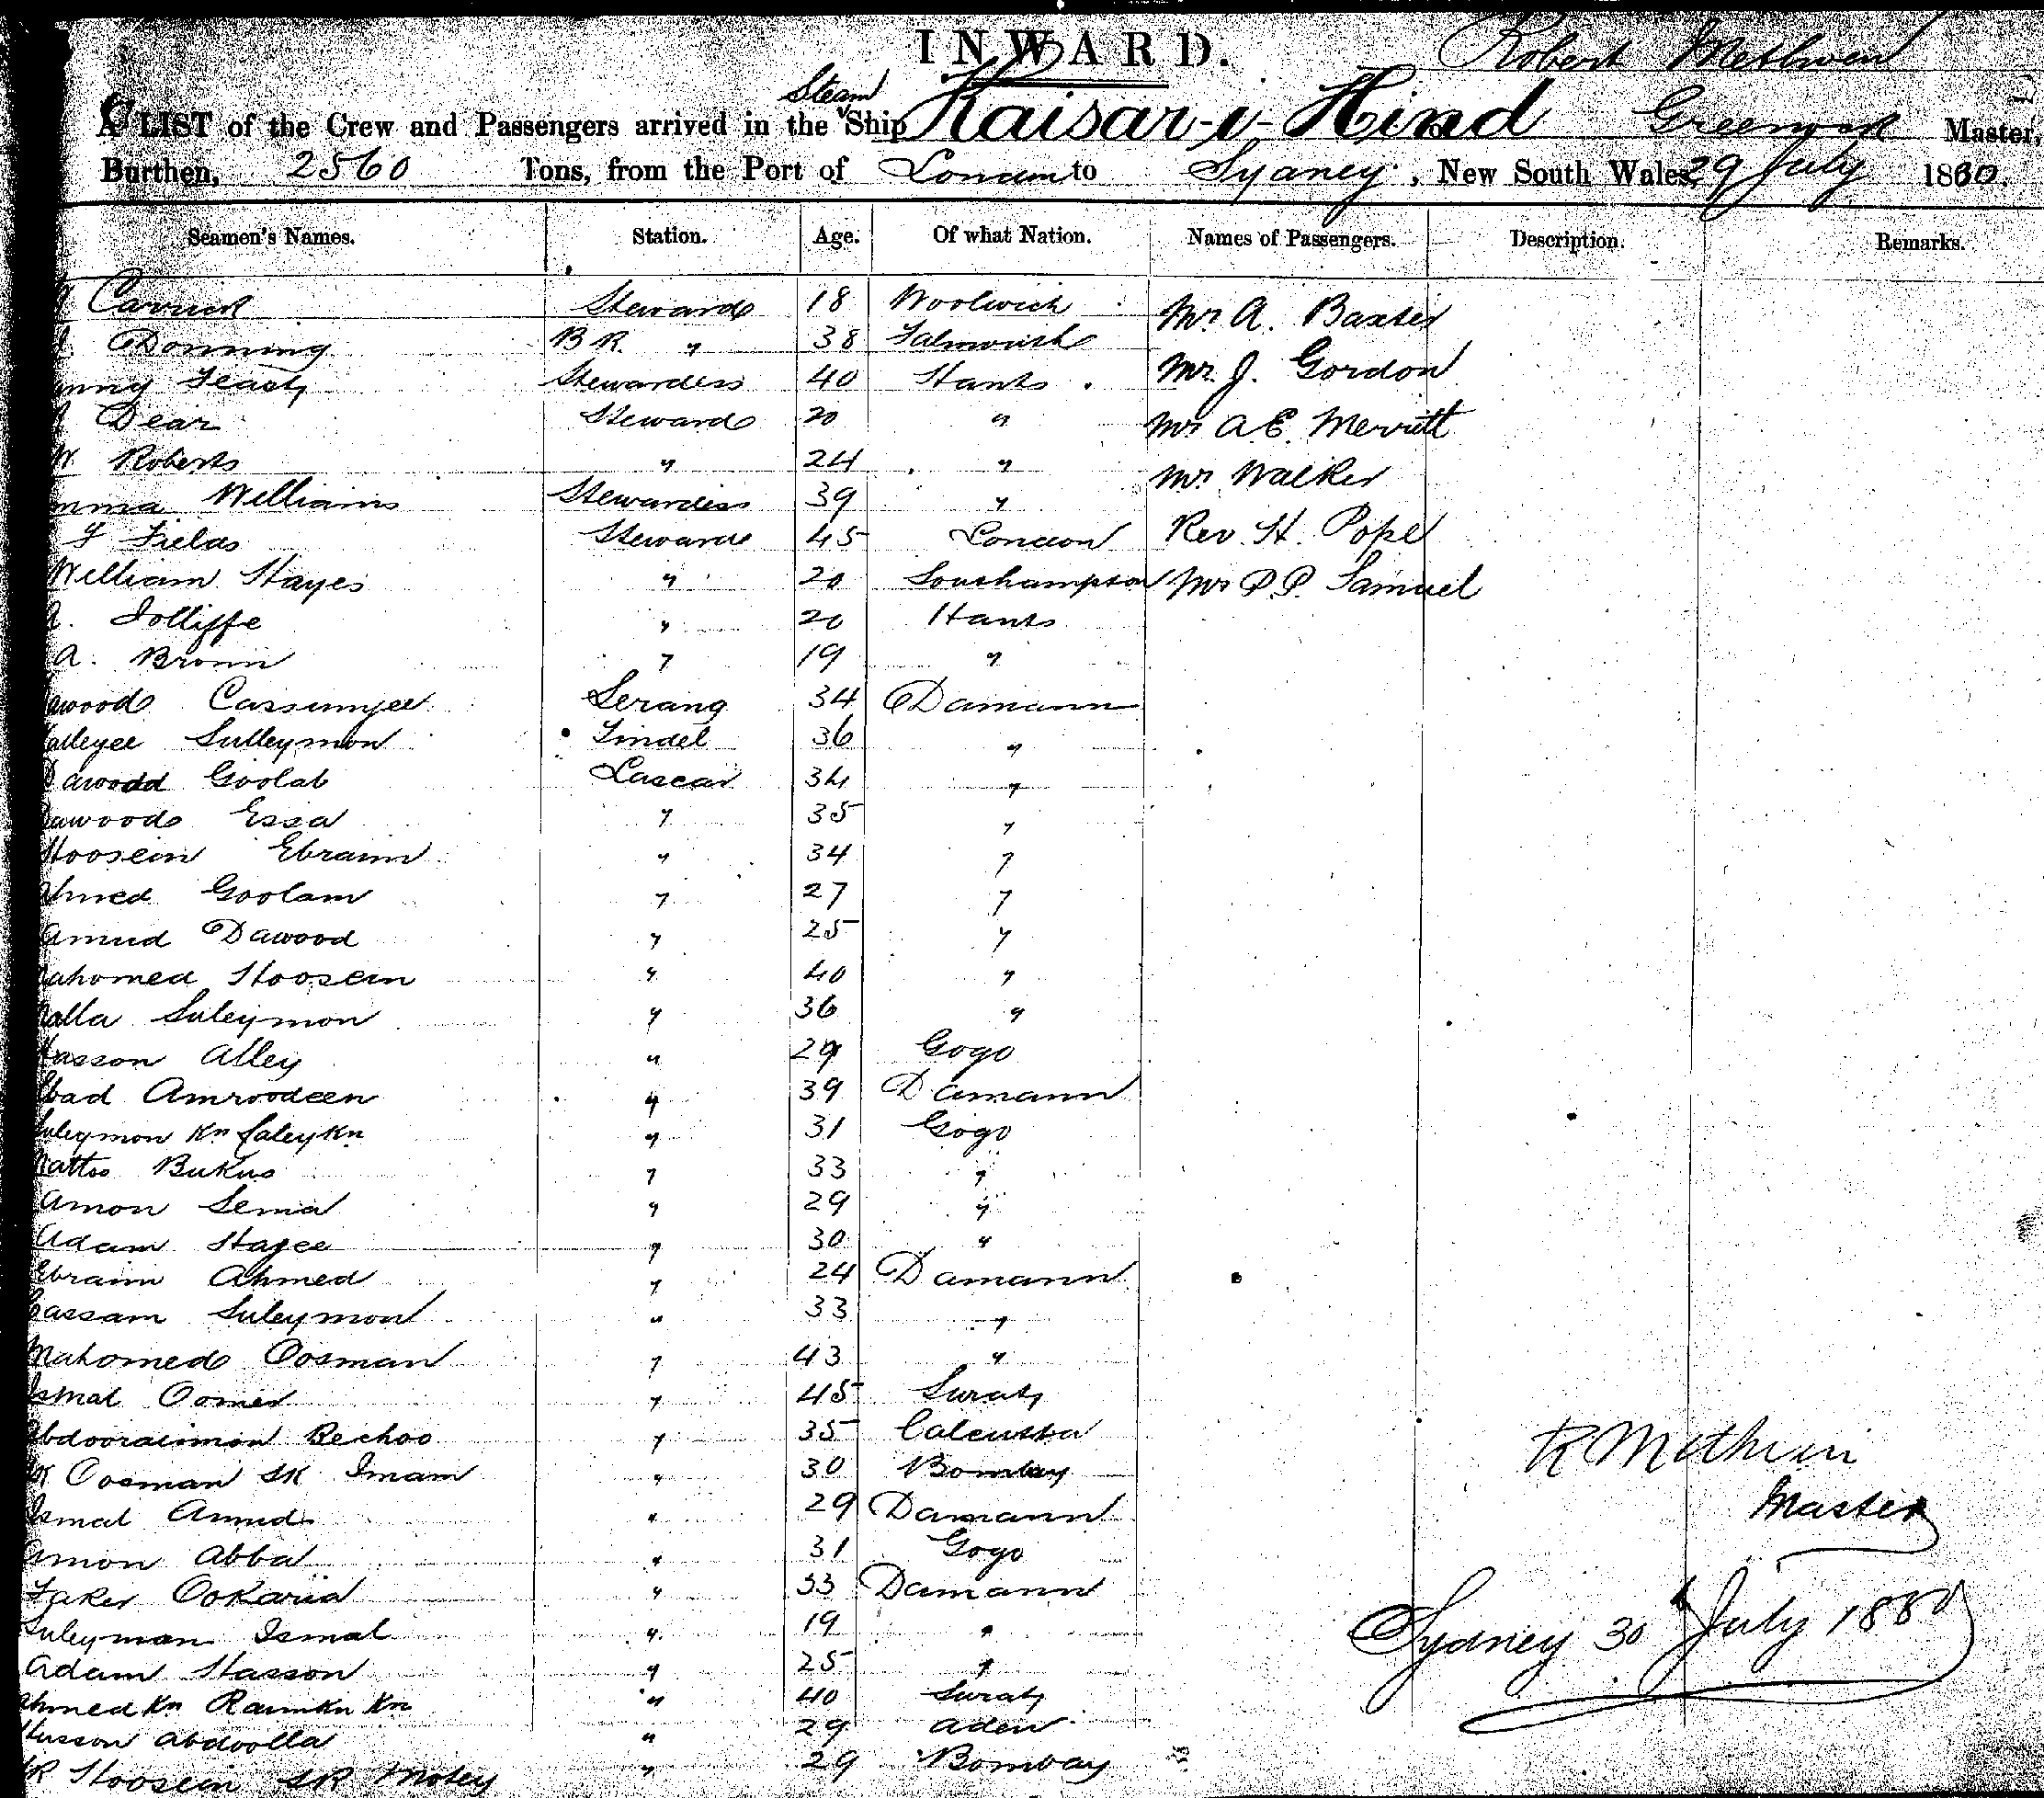 INWARD.
Robert Methven
A LIST of the Crew and Passengers arrived in the Steam Ship Kaisar-i-Hind of Greenock Master,
Burthen, 2560 Tons, from the Port of London to Sydney, New South Wales, 29 July 1880.
Seamen's Names. Station. Age. Of what Nation. Names of Passengers. Description. Remarks.
Carrick Steward 18 Woolwich Mr A. Baxter
Donning B R. " 38 Falmouth Mr. J. Gordon
Stewardess 40 Hants
Dear Steward 20 " Mr A E. Merritt
W. Roberts " 24 " Mr Walker
Williams Stewardess 39 "
Fields Steward 45 London Rev. H. Pope
William Hayes " 20 Southampton Mr P. P. Samuel
Jolliffe " 20 Hants
A. Brown " 19 "
Cassumjee Serang 34 Damann
Sulleymon Tindel 36 "
Dawood Goolab Lascar 34 "
Dawood Essa " 35 "
Hoosein Ebraim " 34 "
Ahmed Goolam " 27 "
Amud Dawood " 25 "
Mahomed Hoosein " 40 "
Suleymon " 36 "
Hasson Alley " 29 Gogo
Amroodeen " 39 Damann
Suleymon Kn Saley Kn " 31 Gogo
Bukus " 33 "
Amon Sema " 29 "
Adam Hajee " 30 "
Ebraim Ahmed " 24 Damann
Cassam Suleymon " 33 "
Mahomed Oosman " 43 "
Ismal Oomer " 45 Surat
Bechoo " 35 Calcutta
SK Oosman SK Imam " 30 Bombay
Ismal Amud " 29 Damann
Amon Abba " 31 Gogo
Ookaria " 33 Damann
Suleyman Ismal " 19 "
Adam Hasson " 25 "
Ahmed Kn Raimkn Kn " 40 Surat
Husson Abdoolla " 29 Aden
SK Hoosein SK Motey " 29 Bombay
R Methven
Master
Sydney 30 July 1880